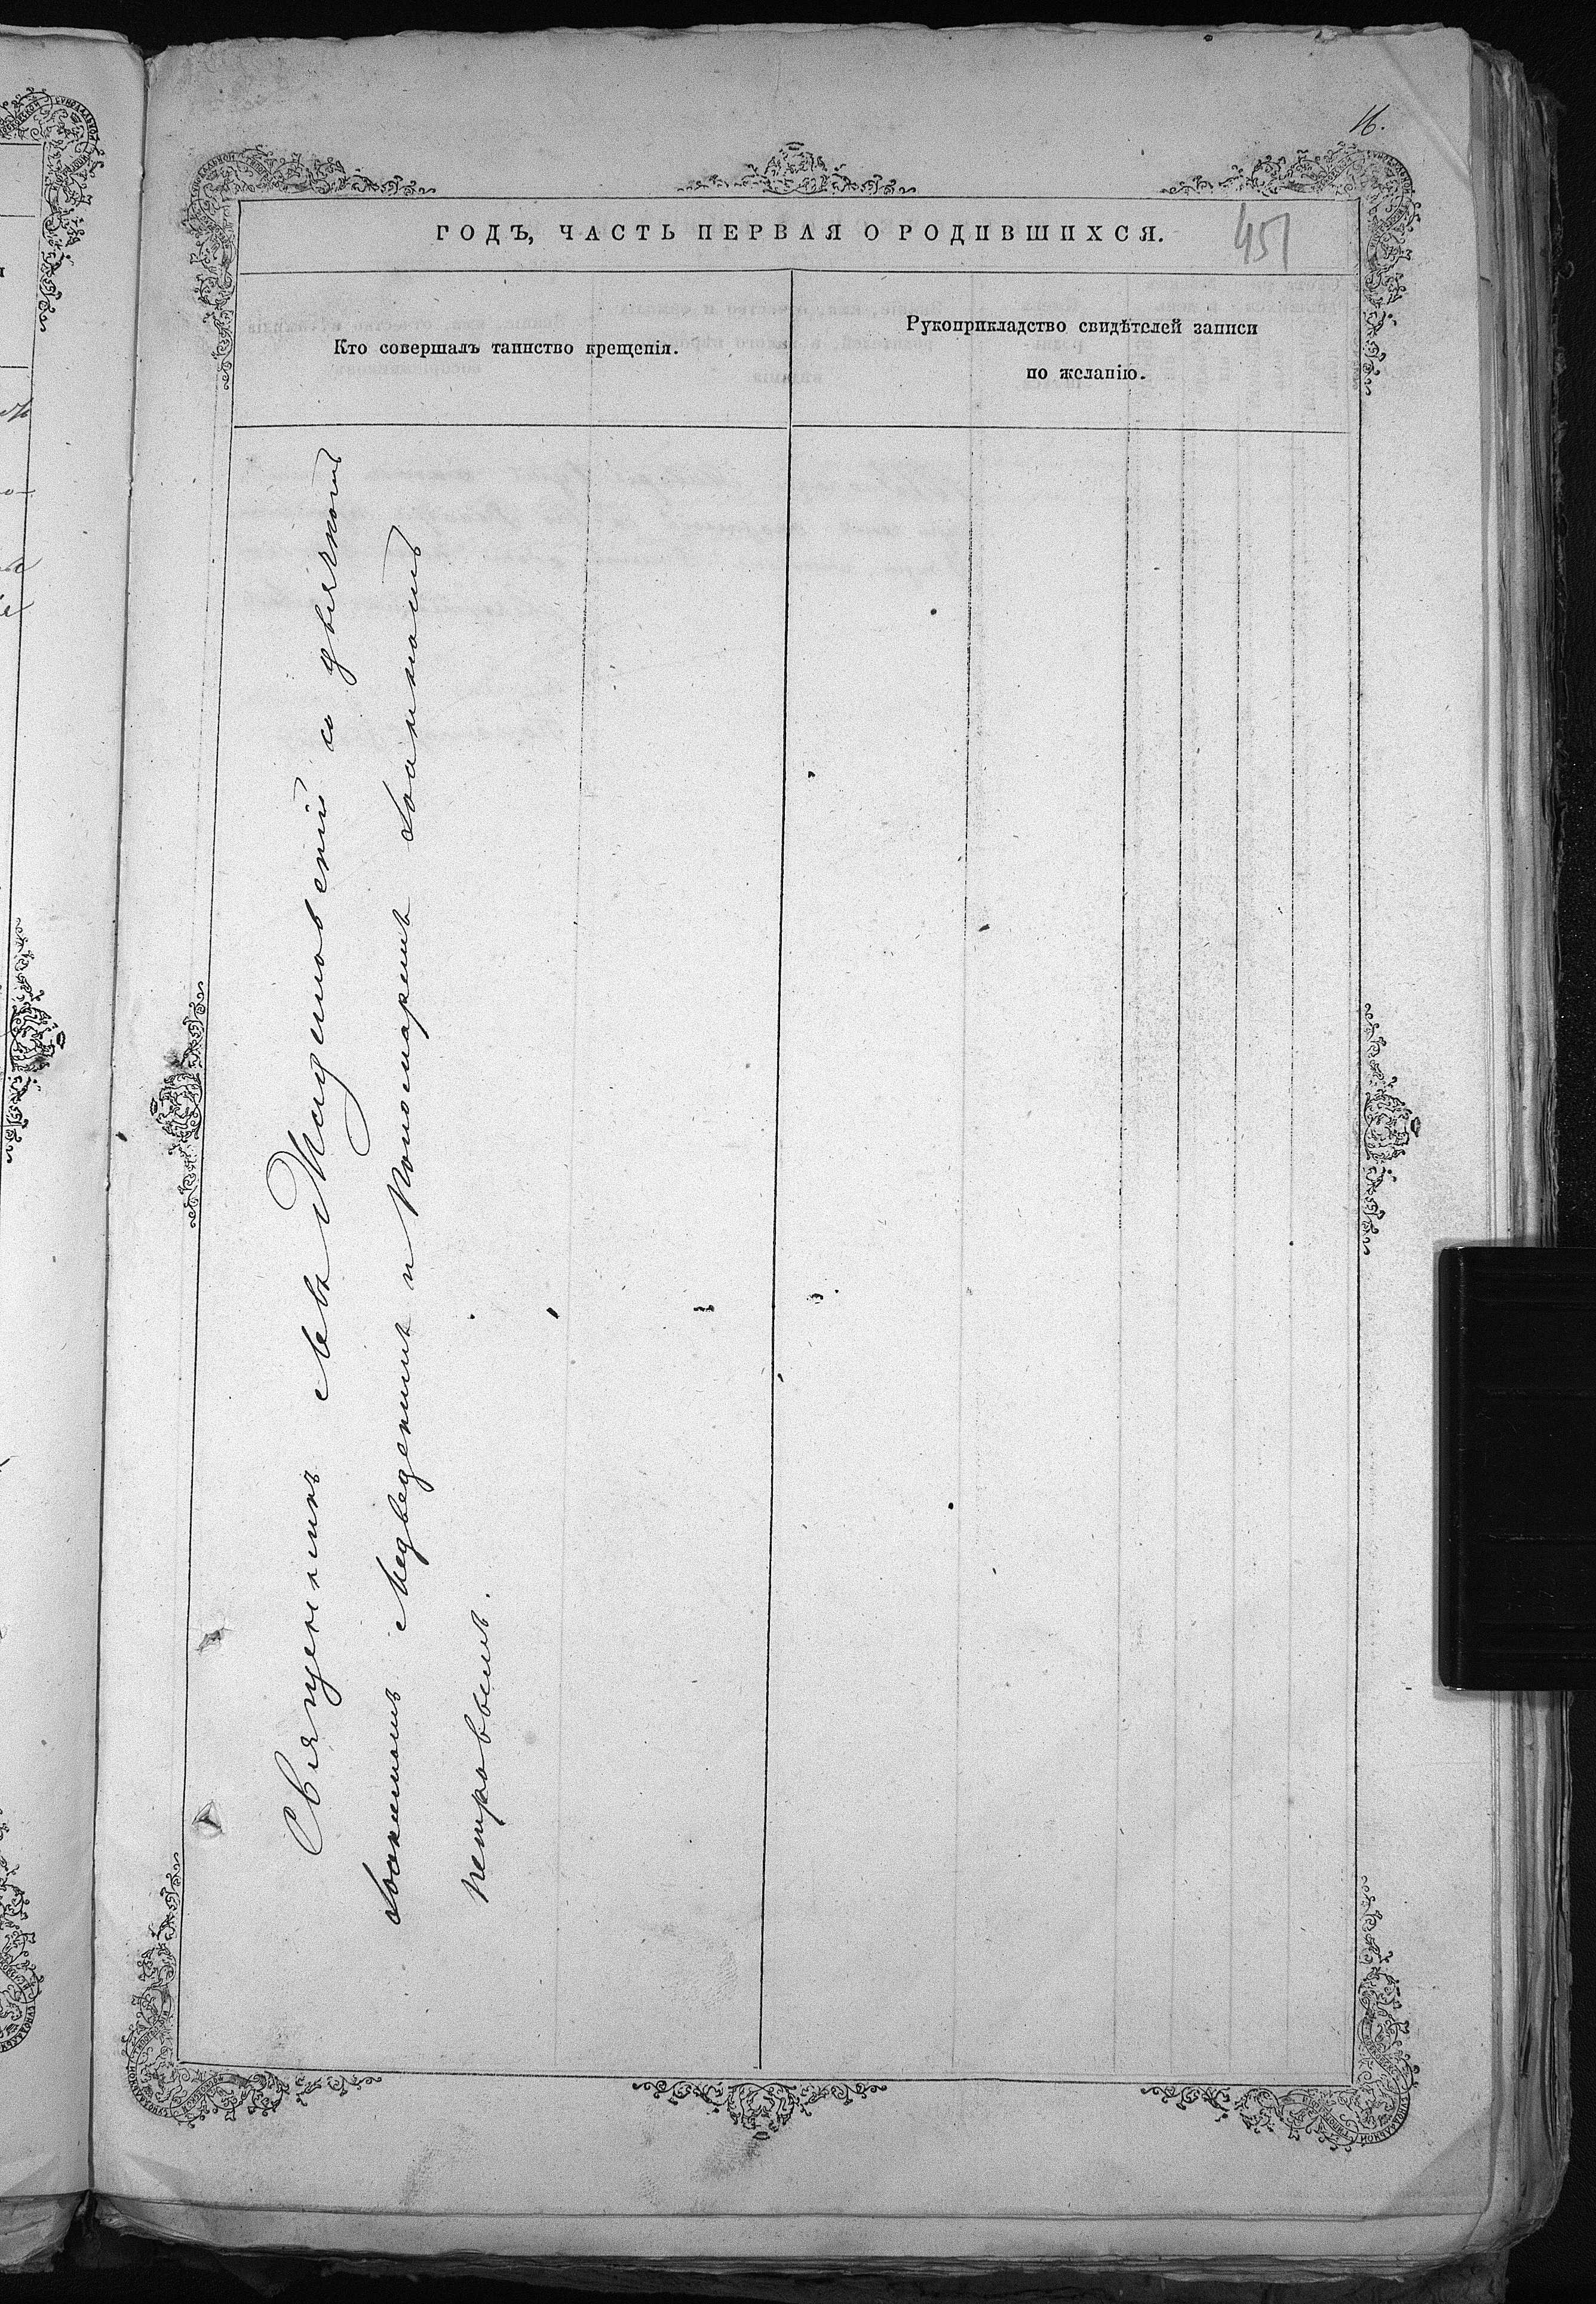 16.
451
ГОДЪ, ЧАСТЬ ПЕРВАЯ О РОДИВШИХСЯ.
Кто совершалъ таинство крещенія.
Рукоприкладство свидѣтелей записи
по желанію.
Священникъ Левъ со дьячкомъ
Іоанномъ Медведкимъ и Пономаремъ Іоанномъ
Петровымъ.